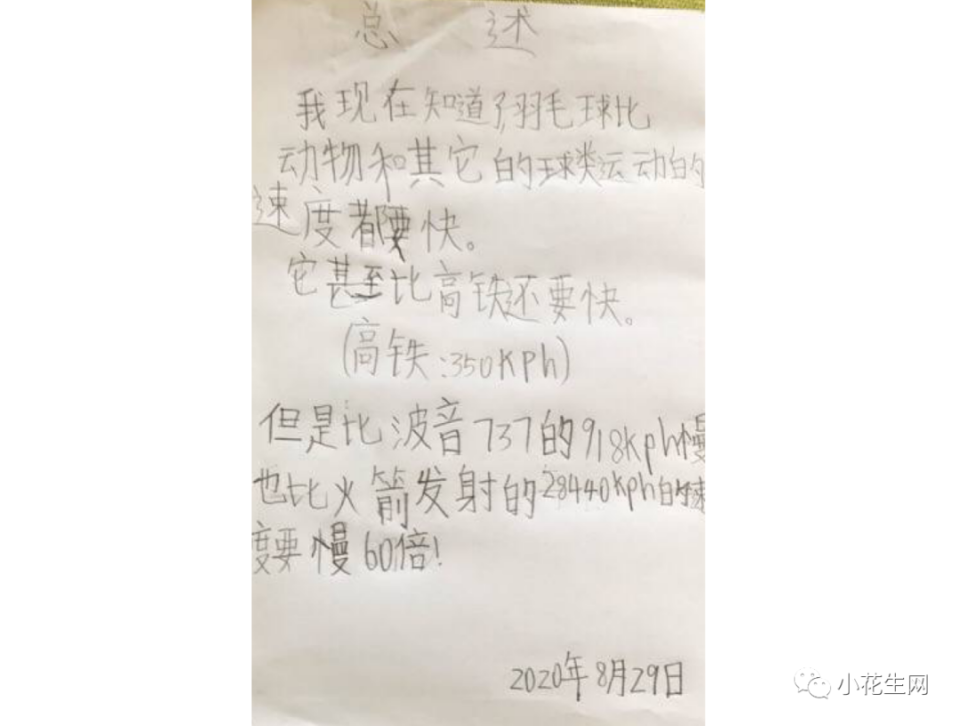 总 述
我现在知道了羽毛球比
动物和其它的球类运动的
速度都要快。
它甚至比高铁还要快。
(高铁:350kph)
但是比波音737的918kph慢
也比火箭发射的28440kph的速
度要慢60倍!
2020年8月29日
小花生网